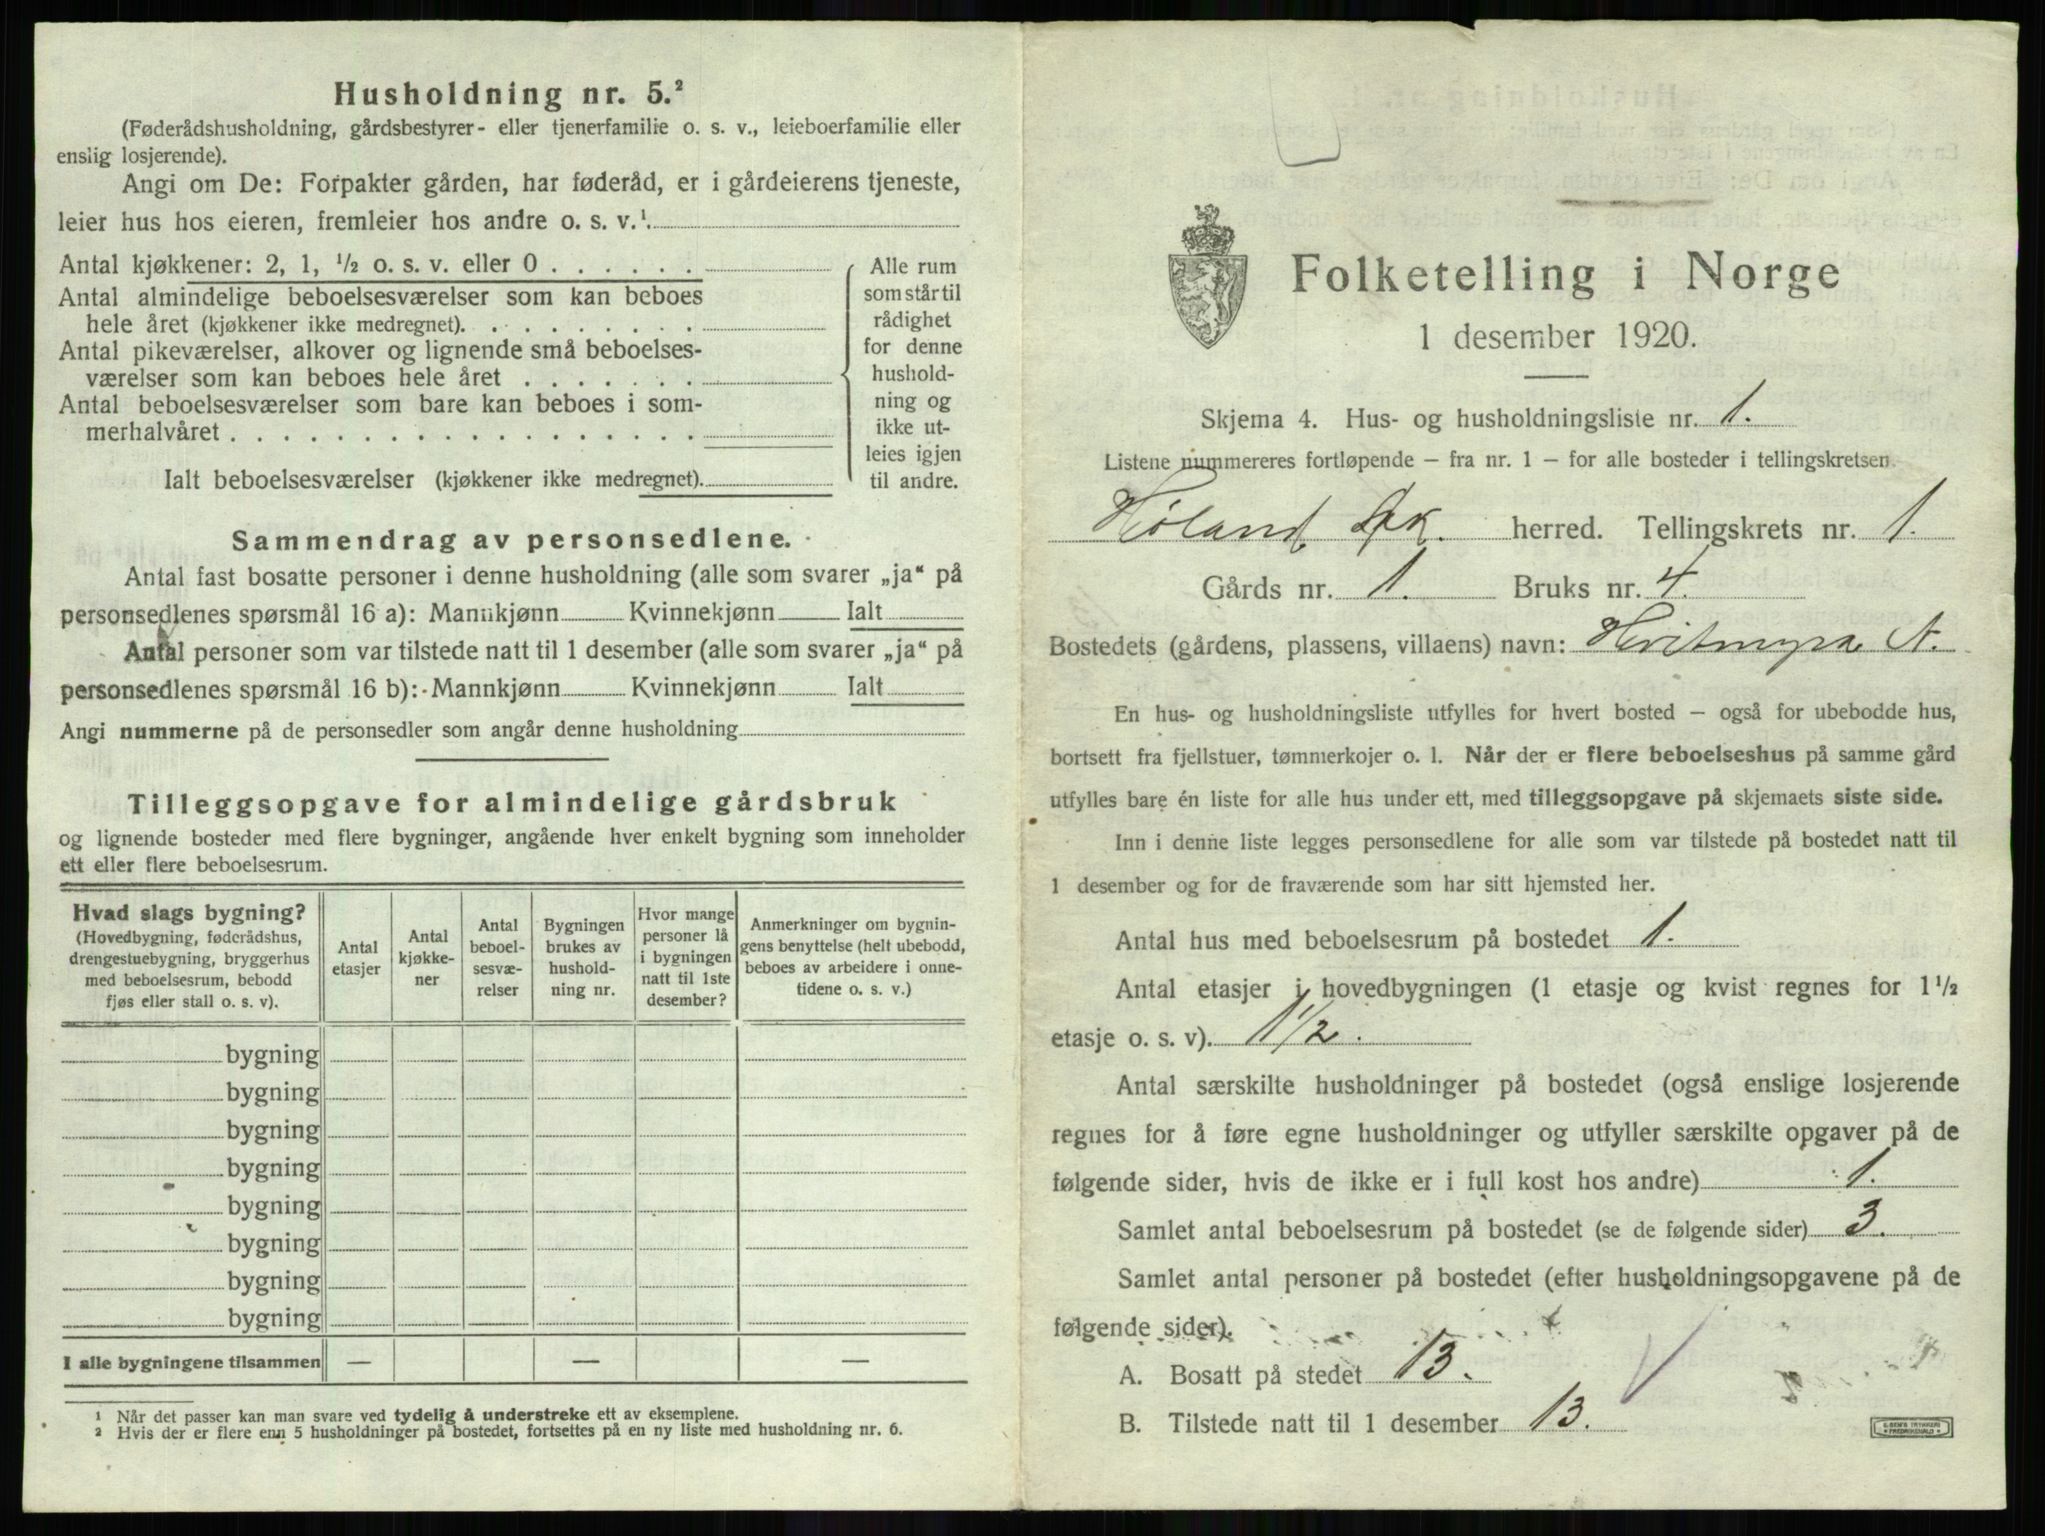 Husholdning nr. 5.²
(Føderådshusholdning, gårdsbestyrer- eller tjenerfamilie o. s. v., leieboerfamilie eller
enslig losjerende).
Angi om De: Forpakter gården, har føderåd, er i gårdeierens tjeneste,
leier hus hos eieren, fremleier hos andre o. s. v.¹.
Antal kjøkkener: 2, 1, ½ o. s. v. eller 0 . . . . . .
Antal almindelige beboelsesværelser som kan beboes
hele året (kjøkkener ikke medregnet). . . . . . . . .
Antal pikeværelser, alkover og lignende små beboelses-
værelser som kan beboes hele året . . . . . . .
Antal beboelsesværelser som bare kan beboes i som-
merhalvåret . . . . . . . . . . . . . . . . . .
Ialt beboelsesværelser (kjøkkener ikke medregnet).
Alle rum
som står til
rådighet
for denne
hushold-
ning og
ikke ut-
leies igjen
til andre.
Sammendrag av personsedlene.
Antal fast bosatte personer i denne husholdning (alle som svarer „ja“ på
personsedlenes spørsmål 16 a): Mannkjønn Kvinnekjønn Ialt
Antal personer som var tilstede natt til 1 desember (alle som svarer „ja“ på
personsedlenes spørsmål 16 b): Mannkjønn Kvinnekjønn Ialt
Angi nummerne på de personsedler som angår denne husholdning
Tilleggsopgave for almindelige gårdsbruk
og lignende bosteder med flere bygninger, angående hver enkelt bygning som inneholder
ett eller flere beboelsesrum.
Hvad slags bygning?
(Hovedbygning, føderådshus,
drengestuebygning, bryggerhus
med beboelsesrum, bebodd
fjøs eller stall o. s. v).
Antal
etasjer
Antal
kjøkke-
ner
Antal
beboel-
sesvæ-
relser
Bygningen
brukes av
hushold-
ning nr.
Hvor mange
personer lå
i bygningen
natt til 1ste
desember?
Anmerkninger om bygnin-
gens benyttelse (helt ubebodd,
beboes av arbeidere i onne-
tidene o. s. v.)
bygning
bygning
bygning
bygning
bygning
bygning
bygning
bygning
I alle bygningene tilsammen — — —
¹ Når det passer kan man svare ved tydelig å understreke ett av eksemplene.
² Hvis der er flere enn 5 husholdninger på bostedet, fortsettes på en ny liste med husholdning nr. 6.
Folketelling i Norge
1 desember 1920.
Skjema 4. Hus- og husholdningsliste nr. 1.
Listene nummereres fortløpende – fra nr. 1 – for alle bosteder i tellingskretsen.
Høland herred. Tellingskrets nr. 1.
Gårds nr. 1. Bruks nr. 4.
Bostedets (gårdens, plassens, villaens) navn: Hvitmyra N.
En hus- og husholdningsliste utfylles for hvert bosted – også for ubebodde hus,
bortsett fra fjellstuer, tømmerkojer o. l. Når der er flere beboelseshus på samme gård
utfylles bare én liste for alle hus under ett, med tilleggsopgave på skjemaets siste side.
Inn i denne liste legges personsedlene for alle som var tilstede på bostedet natt til
1 desember og for de fraværende som har sitt hjemsted her.
Antal hus med beboelsesrum på bostedet 1.
Antal etasjer i hovedbygningen (1 etasje og kvist regnes for 1½
etasje o. s. v). 1½.
Antal særskilte husholdninger på bostedet (også enslige losjerende
regnes for å føre egne husholdninger og utfyller særskilte opgaver på de
følgende sider, hvis de ikke er i full kost hos andre) 1.
Samlet antal beboelsesrum på bostedet (se de følgende sider) 3.
Samlet antal personer på bostedet (efter husholdningsopgavene på de
følgende sider).
A. Bosatt på stedet 13.
B. Tilstede natt til 1 desember 13.